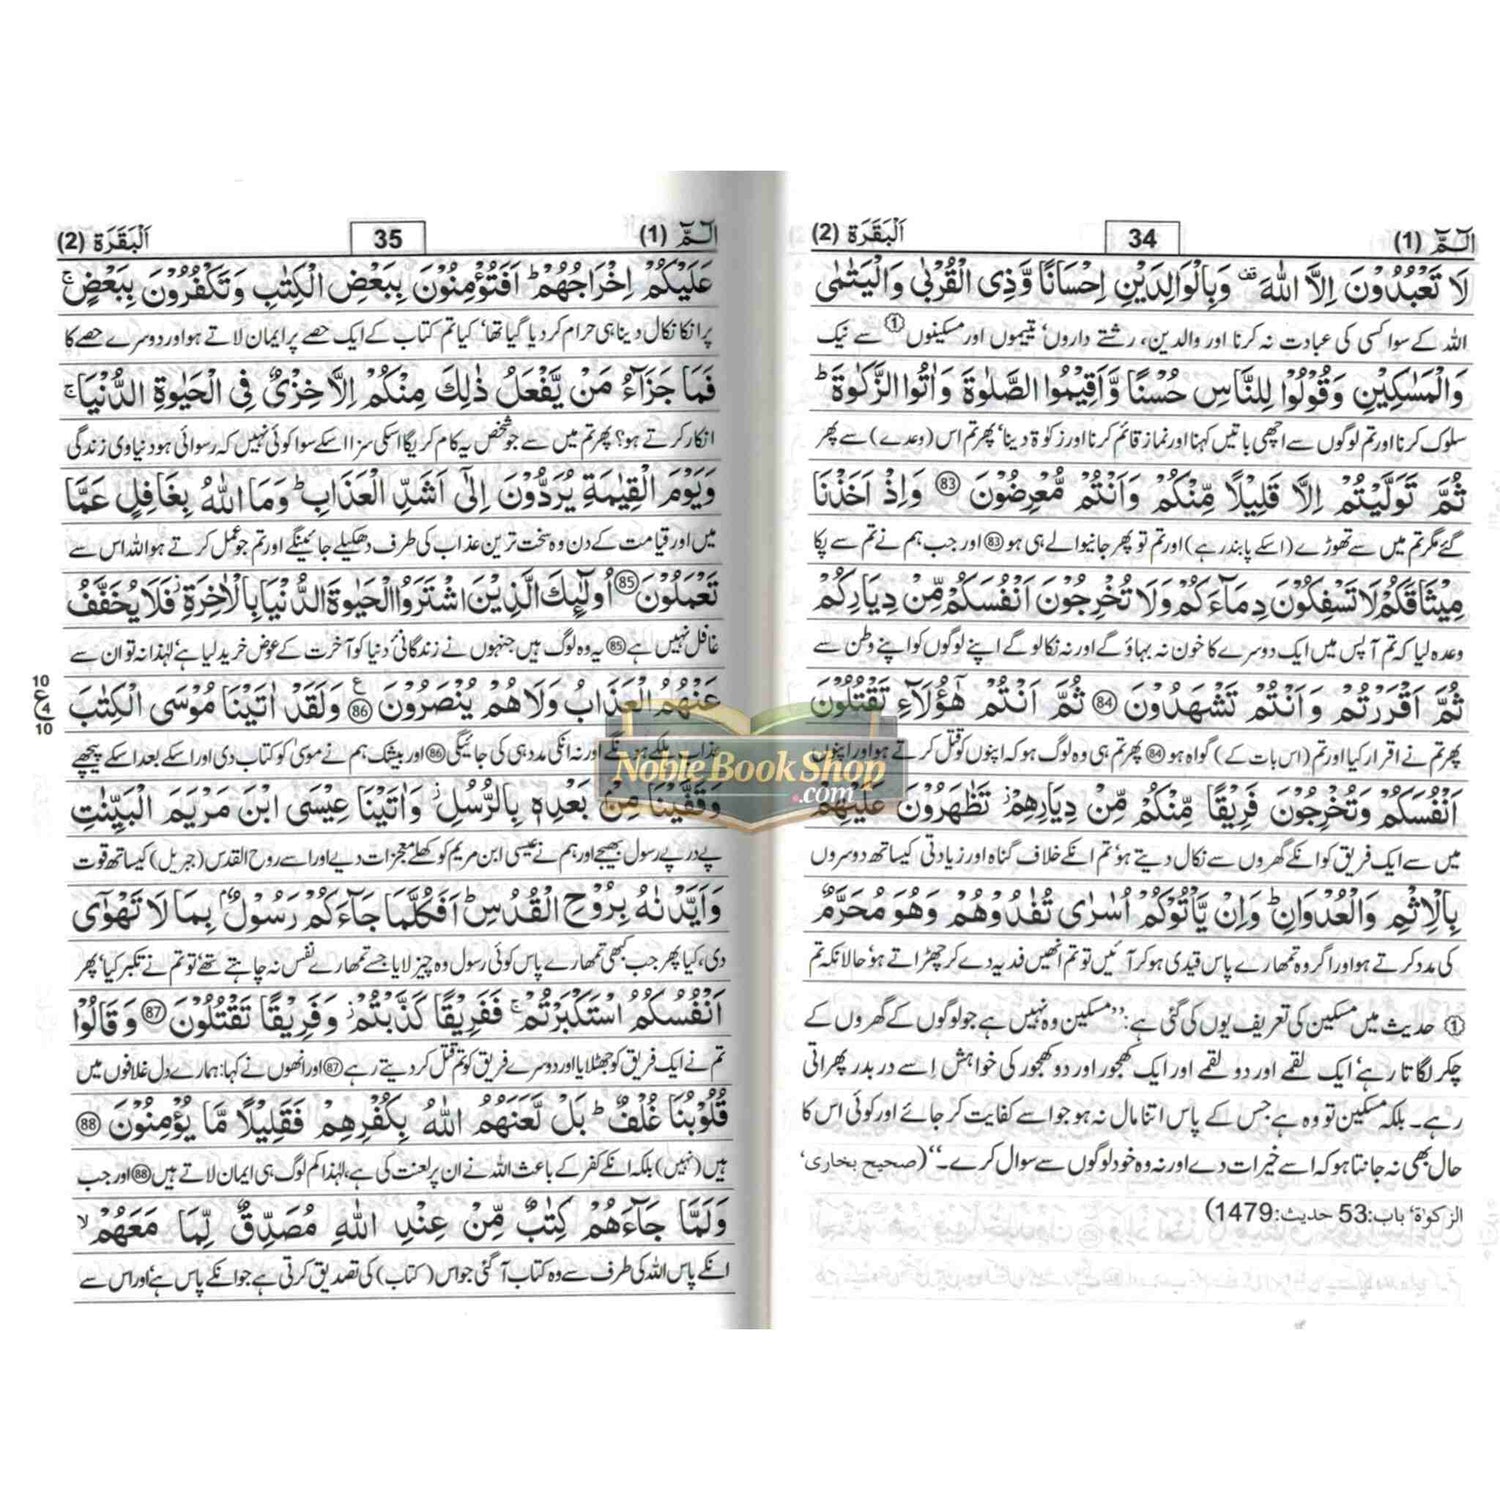 الٓـمّٓ (1)
34
اَلْبَقَرَة (2)
لَا تَعْبُدُوْنَ اِلَّا اللّٰهَ ۫ وَبِالْوَالِدَيْنِ اِحْسَانًا وَّذِی الْقُرْبٰی وَالْيَتٰمٰی
اللہ کے سوا کسی کی عبادت نہ کرنا اور والدین، رشتے داروں، یتیموں اور مسکینوں ① سے نیک
وَالْمَسٰكِيْنِ وَقُوْلُوْا لِلنَّاسِ حُسْنًا وَّاَقِيْمُوا الصَّلٰوةَ وَاٰتُوا الزَّكٰوةَ ؕ
سلوک کرنا اور تم لوگوں سے اچھی باتیں کہنا اور نماز قائم کرنا اور زکوٰۃ دینا، پھر تم اس (وعدے) سے پھر
ثُمَّ تَوَلَّيْتُمْ اِلَّا قَلِيْلًا مِّنْكُمْ وَاَنْتُمْ مُّعْرِضُوْنَ 83 وَاِذْ اَخَذْنَا
گئے مگر تم میں سے تھوڑے (اسکے پابند رہے) اور تم تو پھر جانیوالے ہی ہو 83 اور جب ہم نے تم سے پکا
مِيْثَاقَكُمْ لَا تَسْفِكُوْنَ دِمَآءَكُمْ وَلَا تُخْرِجُوْنَ اَنْفُسَكُمْ مِّنْ دِيَارِكُمْ
وعدہ لیا کہ تم آپس میں ایک دوسرے کا خون نہ بہاؤ گے اور نہ نکالو گے اپنے لوگوں کو اپنے وطن سے
ثُمَّ اَقْرَرْتُمْ وَاَنْتُمْ تَشْهَدُوْنَ 84 ثُمَّ اَنْتُمْ هٰٓؤُلَآءِ تَقْتُلُوْنَ
پھر تم نے اقرار کیا اور تم (اس بات کے) گواہ ہو 84 پھر تم ہی وہ لوگ ہو کہ اپنوں کو قتل کرتے ہو اور اپنوں
اَنْفُسَكُمْ وَتُخْرِجُوْنَ فَرِيْقًا مِّنْكُمْ مِّنْ دِيَارِهِمْ ؗ تَظٰهَرُوْنَ عَلَيْهِمْ
میں سے ایک فریق کو انکے گھروں سے نکال دیتے ہو، تم انکے خلاف گناہ اور زیادتی کیساتھ دوسروں
بِالْاِثْمِ وَالْعُدْوَانِ ؕ وَاِنْ يَّاْتُوْكُمْ اُسٰرٰی تُفٰدُوْهُمْ وَهُوَ مُحَرَّمٌ
کی مدد کرتے ہو اور اگر وہ تمہارے پاس قیدی ہو کر آئیں تو تم انھیں فدیہ دے کر چھڑاتے ہو، حالانکہ تم
① حدیث میں مسکین کی تعریف یوں کی گئی ہے: ”مسکین وہ نہیں ہے جو لوگوں کے گھروں کے
چکر لگاتا رہے، ایک لقمے اور دو لقمے اور ایک کھجور اور دو کھجور کی خواہش اِسے در بدر پھراتی
رہے۔ بلکہ مسکین تو وہ ہے جس کے پاس اتنا مال نہ ہو جو اسے کفایت کر جائے اور کوئی اس کا
حال بھی نہ جانتا ہو کہ اسے خیرات دے اور نہ وہ خود لوگوں سے سوال کرے۔“ (صحیح بخاری،
الزکوٰۃ، باب:53 حدیث:1479)
الٓـمّٓ (1)
35
اَلْبَقَرَة (2)
عَلَيْكُمْ اِخْرَاجُهُمْ ؕ اَفَتُؤْمِنُوْنَ بِبَعْضِ الْكِتٰبِ وَتَكْفُرُوْنَ بِبَعْضٍ ۚ
پر انکا نکال دینا ہی حرام کر دیا گیا تھا، کیا تم کتاب کے ایک حصے پر ایمان لاتے ہو اور دوسرے حصے کا
فَمَا جَزَآءُ مَنْ يَّفْعَلُ ذٰلِكَ مِنْكُمْ اِلَّا خِزْیٌ فِی الْحَيٰوةِ الدُّنْيَا ۚ
انکار کرتے ہو؟ پھر تم میں سے جو شخص یہ کام کریگا اسکی سزا اسکے سوا کوئی نہیں کہ رسوائی ہو دنیاوی زندگی
وَيَوْمَ الْقِيٰمَةِ يُرَدُّوْنَ اِلٰٓی اَشَدِّ الْعَذَابِ ؕ وَمَا اللّٰهُ بِغَافِلٍ عَمَّا
میں اور قیامت کے دن وہ سخت ترین عذاب کی طرف دھکیلے جائینگے اور تم جو عمل کرتے ہو اللہ اس سے
تَعْمَلُوْنَ 85 اُولٰٓئِكَ الَّذِيْنَ اشْتَرَوُا الْحَيٰوةَ الدُّنْيَا بِالْاٰخِرَةِ ؗ فَلَا يُخَفَّفُ
غافل نہیں ہے 85 یہ وہ لوگ ہیں جنہوں نے زندگانیٔ دنیا کو آخرت کے عوض خرید لیا ہے، لہٰذا نہ تو ان سے
10
ع
4
10
عَنْهُمُ الْعَذَابُ وَلَا هُمْ يُنْصَرُوْنَ 86 ع وَلَقَدْ اٰتَيْنَا مُوْسَی الْكِتٰبَ
عذاب ہلکے ہونگے اور نہ انکی مدد ہی کی جائیگی 86 اور بیشک ہم نے موسیٰ کو کتاب دی اور اسکے بعد اسکے پیچھے
وَقَفَّيْنَا مِنْۢ بَعْدِهٖ بِالرُّسُلِ ؗ وَاٰتَيْنَا عِيْسَی ابْنَ مَرْيَمَ الْبَيِّنٰتِ
پے در پے رسول بھیجے اور ہم نے عیسیٰ ابن مریم کو کھلے معجزات دیے اور اسے روح القدس (جبریل) کیساتھ قوت
وَاَيَّدْنٰهُ بِرُوْحِ الْقُدُسِ ؕ اَفَكُلَّمَا جَآءَكُمْ رَسُوْلٌۢ بِمَا لَا تَهْوٰٓی
دی، کیا پھر جب کبھی تمہارے پاس کوئی رسول وہ چیز لایا جسے تمہارے نفس نہ چاہتے تھے، تو تم نے تکبر کیا، پھر
اَنْفُسُكُمُ اسْتَكْبَرْتُمْ ۚ فَفَرِيْقًا كَذَّبْتُمْ ؗ وَفَرِيْقًا تَقْتُلُوْنَ 87 وَقَالُوْا
تم نے ایک فریق کو جھٹلایا اور دوسرے فریق کو تم قتل کر دیتے رہے 87 اور انھوں نے کہا: ہمارے دل غلافوں میں
قُلُوْبُنَا غُلْفٌ ؕ بَلْ لَّعَنَهُمُ اللّٰهُ بِكُفْرِهِمْ فَقَلِيْلًا مَّا يُؤْمِنُوْنَ 88
ہیں (نہیں) بلکہ انکے کفر کے باعث اللہ نے ان پر لعنت کی ہے، لہٰذا کم لوگ ہی ایمان لاتے ہیں 88 اور جب
وَلَمَّا جَآءَهُمْ كِتٰبٌ مِّنْ عِنْدِ اللّٰهِ مُصَدِّقٌ لِّمَا مَعَهُمْ ۙ
انکے پاس اللہ کی طرف سے وہ کتاب آگئی جو اس (کتاب) کی تصدیق کرتی ہے جو انکے پاس ہے، اور اس سے
Noble Book Shop
.com